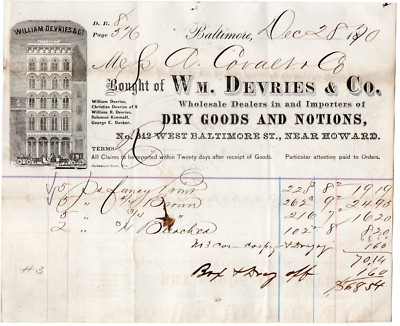 D. B. 8
Page 576
Baltimore, Dec 28 1870
WILLIAM DEVRIES & Co.
Mess A. Covalt & Co
Bought of WM. DEVRIES & CO.
William Devries,
Christian Devries of S
William R. Devries,
Solomon Kimmell,
George E. Decker.
Wholesale Dealers in and Importers of
DRY GOODS AND NOTIONS,
No. 312 WEST BALTIMORE ST., NEAR HOWARD.
TERMS
All Claims to be reported within Twenty days after receipt of Goods. Particular attention paid to Orders.
5 Ps 228 8 1919
5 " Brown 262 9 2495
5 " 216 7 1620
2 " 4/4 Bleached 102 8 820
& Dray 160
7014
#3 Box & Dray off 160
$6854